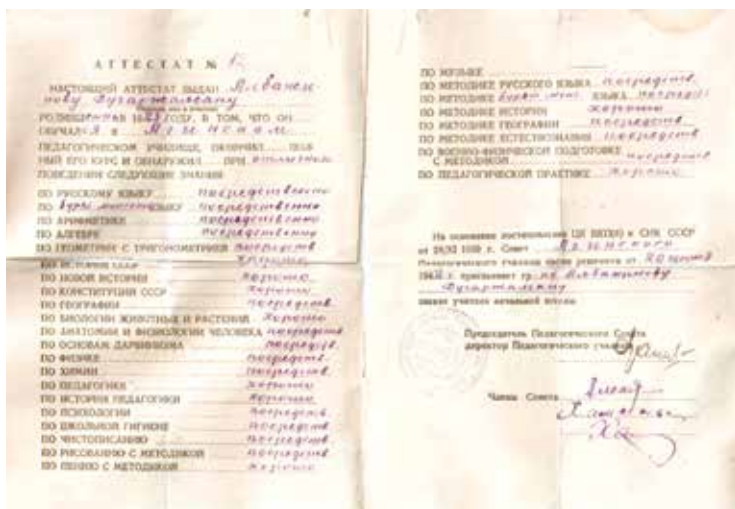 АТТЕСТАТ №
НАСТОЯЩИЙ АТТЕСТАТ ВЫДАН
нову Дугаржапсану
ГОДУ, В ТОМ, ЧТО ОН
ОБУЧАЛСЯ В Агинском
ПЕДАГОГИЧЕСКОМ УЧИЛИЩЕ, ОКОНЧИЛ ПОЛ
НЫЙ ЕГО КУРС И ОБНАРУЖИЛ ПРИ отличном
ПОВЕДЕНИИ СЛЕДУЮЩИЕ ЗНАНИЯ
ПО РУССКОМУ ЯЗЫКУ посредственно
ПО ЯЗЫКУ посредственно
ПО АРИФМЕТИКЕ посредственно
ПО АЛГЕБРЕ посредственно
ПО ГЕОМЕТРИИ С ТРИГОНОМЕТРИЕЙ посредств
ПО ИСТОРИИ СССР хорошо
ПО НОВОЙ ИСТОРИИ хорошо
ПО КОНСТИТУЦИИ СССР хорошо
ПО ГЕОГРАФИИ посредств
ПО БИОЛОГИИ ЖИВОТНЫХ И РАСТЕНИЙ хорошо
ПО АНАТОМИИ И ФИЗИОЛОГИИ ЧЕЛОВЕКА посредств
ПО ОСНОВАМ ДАРВИНИЗМА посредств
ПО ФИЗИКЕ посредств
ПО ХИМИИ посредств
ПО ПЕДАГОГИКЕ хорошо
ПО ИСТОРИИ ПЕДАГОГИКИ хорошо
ПО ПСИХОЛОГИИ посредств
ПО ШКОЛЬНОЙ ГИГИЕНЕ посредств
ПО ЧИСТОПИСАНИЮ посредств
ПО РИСОВАНИЮ С МЕТОДИКОЙ посредств
ПО ПЕНИЮ С МЕТОДИКОЙ хорошо
ПО МУЗЫКЕ
ПО МЕТОДИКЕ РУССКОГО ЯЗЫКА посредств.
ПО МЕТОДИКЕ ЯЗЫКА посредс
ПО МЕТОДИКЕ ИСТОРИИ хорошо
ПО МЕТОДИКЕ ГЕОГРАФИИ посредств
ПО МЕТОДИКЕ ЕСТЕСТВОЗНАНИЯ посредств
ПО ВОЕННО-ФИЗИЧЕСКОЙ ПОДГОТОВКЕ
С МЕТОДИКОЙ посредств
ПО ПЕДАГОГИЧЕСКОЙ ПРАКТИКЕ хорошо
На основании постановления ЦК ВКП(б) и СНК СССР
от г. Совет Агинского
Педагогического училища
г. присваивает гр.
Дугаржапсану
звание учителя начальной школы
Председатель Педагогического Совета
директор Педагогического училища
Члены Совета